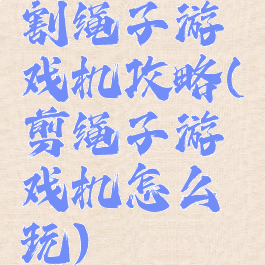 割绳子游
戏机攻略(
剪绳子游
戏机怎么
玩)